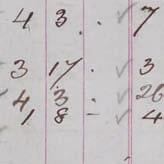 4 3 . ✓ 7
3 17 . ✓ 3
✓ 4 3 . ✓ 26
1 8 - ✓ 4